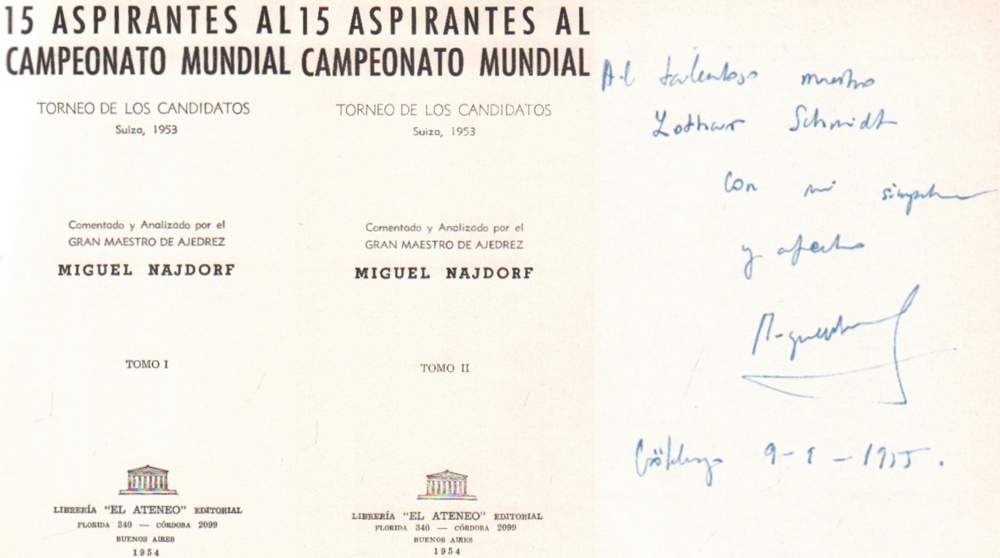 15 ASPIRANTES AL
CAMPEONATO MUNDIAL
TORNEO DE LOS CANDIDATOS
Suiza, 1953
Comentado y Analizado por el
GRAN MAESTRO DE AJEDREZ
MIGUEL NAJDORF
TOMO I
LIBRERÍA "EL ATENEO" EDITORIAL
FLORIDA 340 — CÓRDOBA 2099
BUENOS AIRES
1954
15 ASPIRANTES AL
CAMPEONATO MUNDIAL
TORNEO DE LOS CANDIDATOS
Suiza, 1953
Comentado y Analizado por el
GRAN MAESTRO DE AJEDREZ
MIGUEL NAJDORF
TOMO II
LIBRERÍA "EL ATENEO" EDITORIAL
FLORIDA 340 — CÓRDOBA 2099
BUENOS AIRES
1954
Al talentoso maestro
Lothar Schmidt
Con mi
y afecto